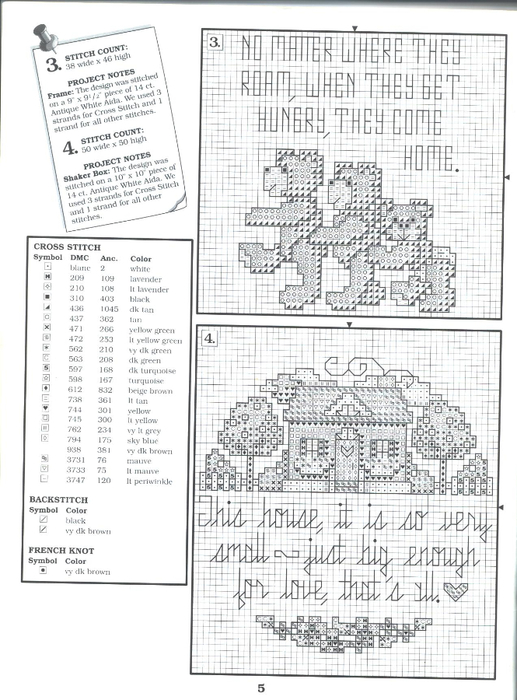 3. STITCH COUNT:
38 wide x 46 high
PROJECT NOTES
Frame: The design was stitched
on a 9" x 9 1/2" piece of 14 ct.
Antique White Aida. We used 3
strands for Cross Stitch and 1
strand for all other stitches.
4. STITCH COUNT:
50 wide x 50 high
PROJECT NOTES
Shaker Box: The design was
stitched on a 10" x 10" piece of
14 ct. Antique White Aida. We
used 3 strands for Cross Stitch
and 1 strand for all other
stitches.
CROSS STITCH
Symbol DMC Anc. Color
blanc 2 white
209 109 lavender
210 108 lt lavender
310 403 black
436 1045 dk tan
437 362 tan
471 266 yellow green
472 253 lt yellow green
562 210 vy dk green
563 208 dk green
597 168 dk turquoise
598 167 turquoise
612 832 beige brown
738 361 lt tan
744 301 yellow
745 300 lt yellow
762 234 vy lt grey
794 175 sky blue
938 381 vy dk brown
3731 76 mauve
3733 75 lt mauve
3747 120 lt periwinkle
BACKSTITCH
Symbol Color
black
vy dk brown
FRENCH KNOT
Symbol Color
vy dk brown
3.
NO MATTER WHERE THEY
ROAM, WHEN THEY GET
HUNGRY, THEY COME
HOME.
4.
This house, it is so very
small ~ just big enough
for love, that's all.
5